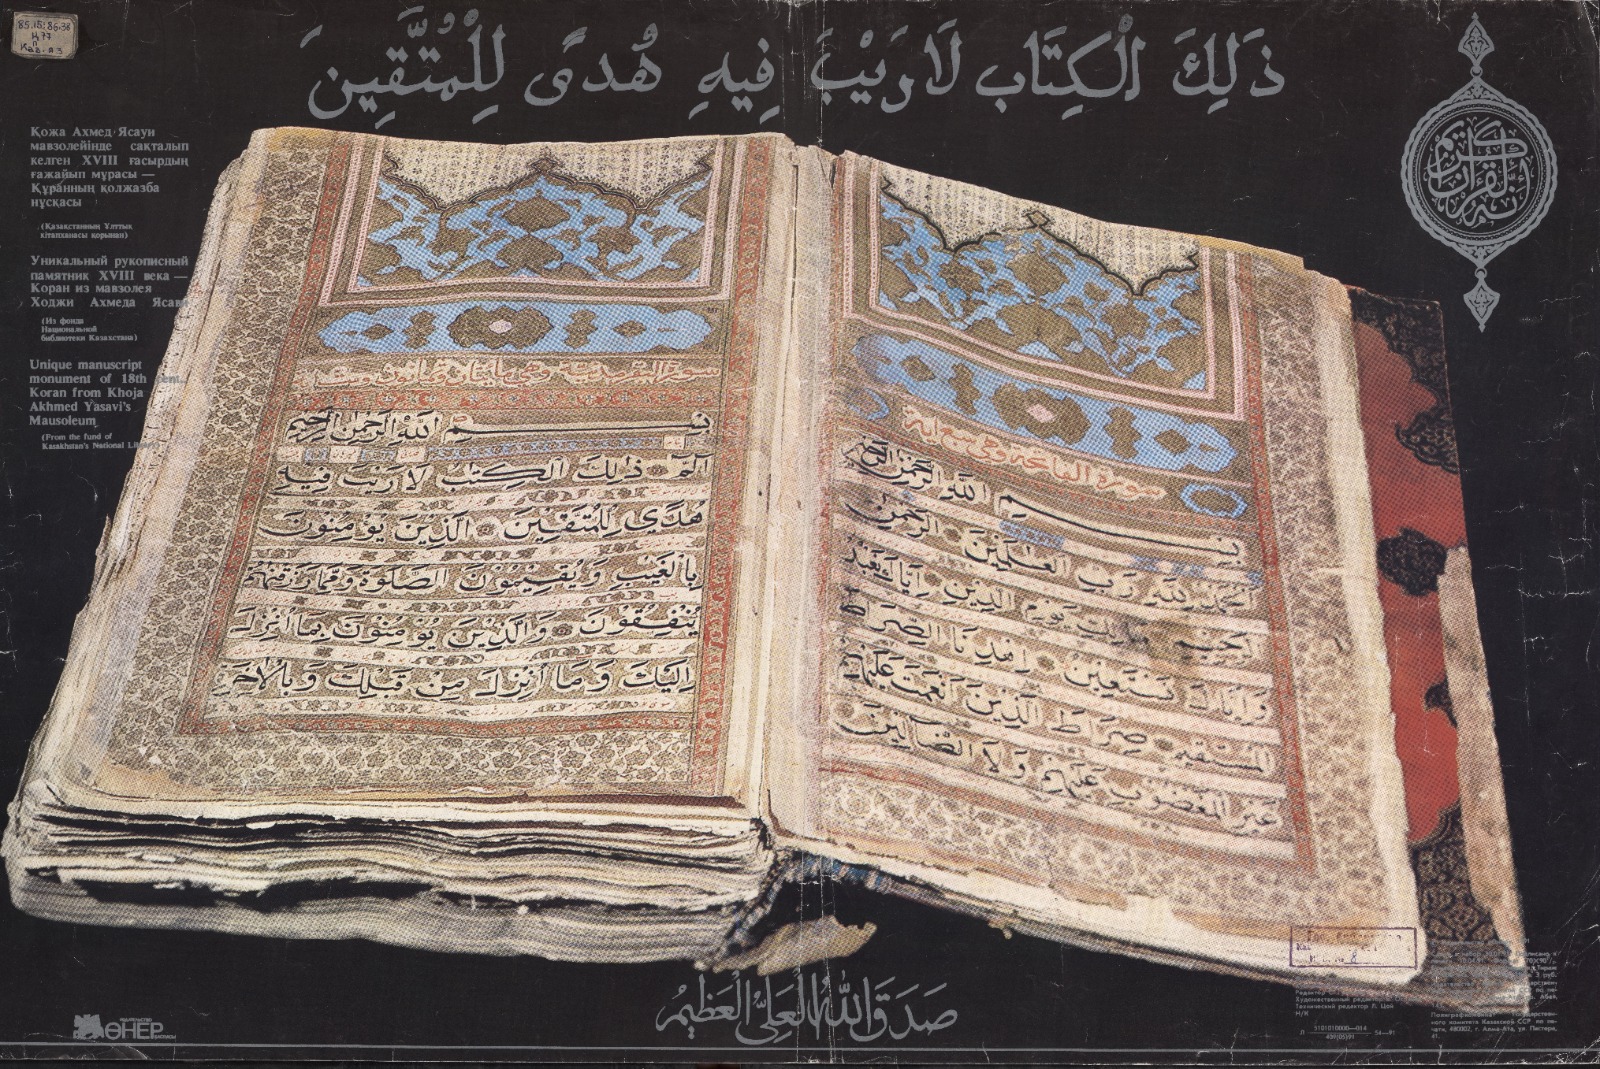 ذَلِكَ الْكِتَاب لَا رَيْبَ فِيهِ هُدىً لِلْمُتَّقِينَ
85.15; 86-38
Қожа Ахмед Ясауи
мавзолейінде сақталып
келген XVIII ғасырдың
ғажайып мұрасы —
Құранның қолжазба
нұсқасы
(Қазақстанның Ұлттық
кітапханасы қорынан)
Уникальный рукописный
памятник XVIII века —
Коран из мавзолея
Ходжи Ахмеда Ясави
(Из фонда
Национальной
библиотеки Казахстана)
Unique manuscript
monument of 18th cent.
Koran from Khoja
Akhmed Yasavi's
Mausoleum
(From the fund of
Kazakhstan's National
إنه لقرآن كريم
سورة الفاتحة وهي
بسم الله الرحمن الرحيم
الحمد لله رب العلمين الرحمن
الرحيم مالك يوم الدين اياك نعبد
واياك نستعين اهدنا الصراط
المستقيم صراط الذين انعمت عليهم
غير المغضوب عليهم ولا الضالين
بسم الله الرحمن الرحيم
الم ذلك الكتب لا ريب فيه
هدى للمتقين الذين يؤمنون
بالغيب ويقيمون الصلوة ومما رزقنهم
ينفقون والذين يؤمنون بما انزل
اليك وما انزل من قبلك وبالاخر
صَدَقَ اللهُ الْعَلِيُّ الْعَظِيمُ
ӨНЕР
Технический редактор Л. Цой
Н/К
5101010000—014
54—91
409(05)91
480002, г. Алма-Ата, ул. Пастера,
41.